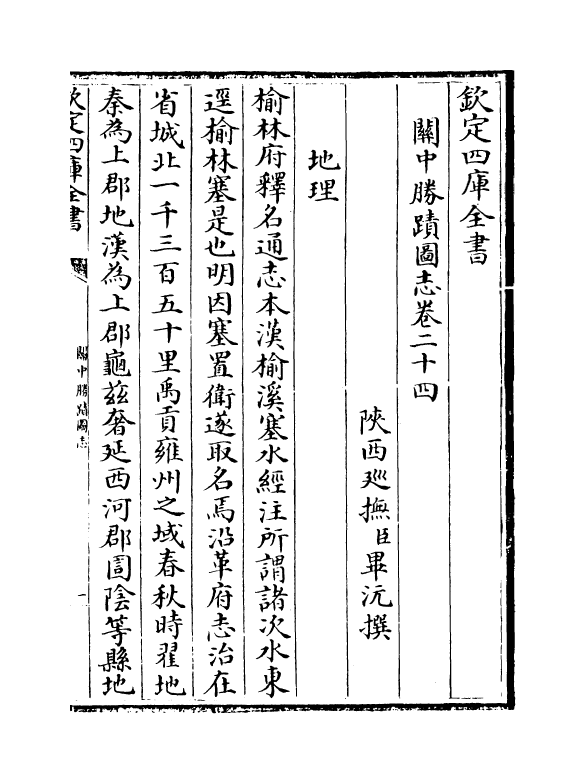 欽定四庫全書
關中勝蹟圖志卷二十四
陜西巡撫臣畢沅撰
地理
榆林府釋名通志本漢榆溪塞水經注所謂諸次水東
逕榆林塞是也明因塞置衛遂取名焉沿革府志治在
省城北一千三百五十里禹貢雍州之域春秋時翟地
秦為上郡地漢為上郡龜兹奢延西河郡圁陰等縣地
欽定四庫全書
關中勝蹟圖志
一